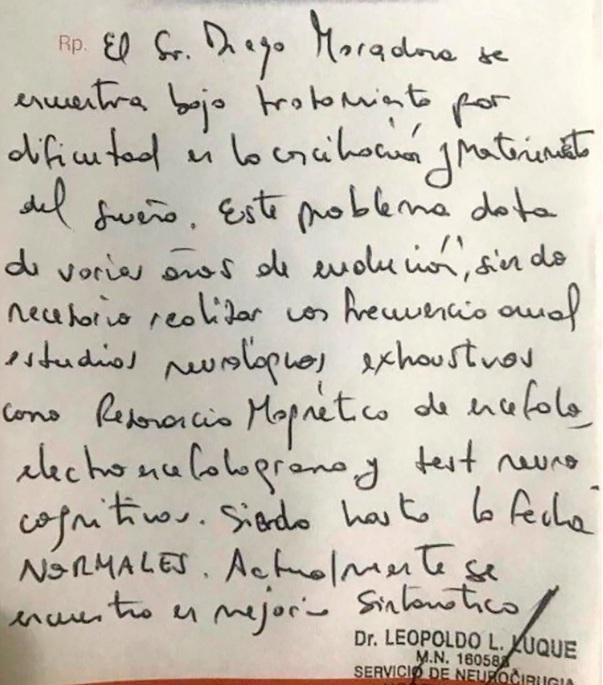 Rp. El Sr. Diego Maradona se
encuentra bajo tratamiento por
dificultad en la conciliación y mantenimiento
del sueño. Este problema data
de varios años de evolución, siendo
necesario realizar con frecuencia anual
estudios neurológicos exhaustivos
como Resonancia Magnética de encefalo
electroencefalograma y test neuro
cognitivos. Siendo hasta la fecha
NORMALES. Actualmente se
encuentra en mejoría sintomática
Dr. LEOPOLDO L. LUQUE
M.N. 160588
SERVICIO DE NEUROCIRUGIA